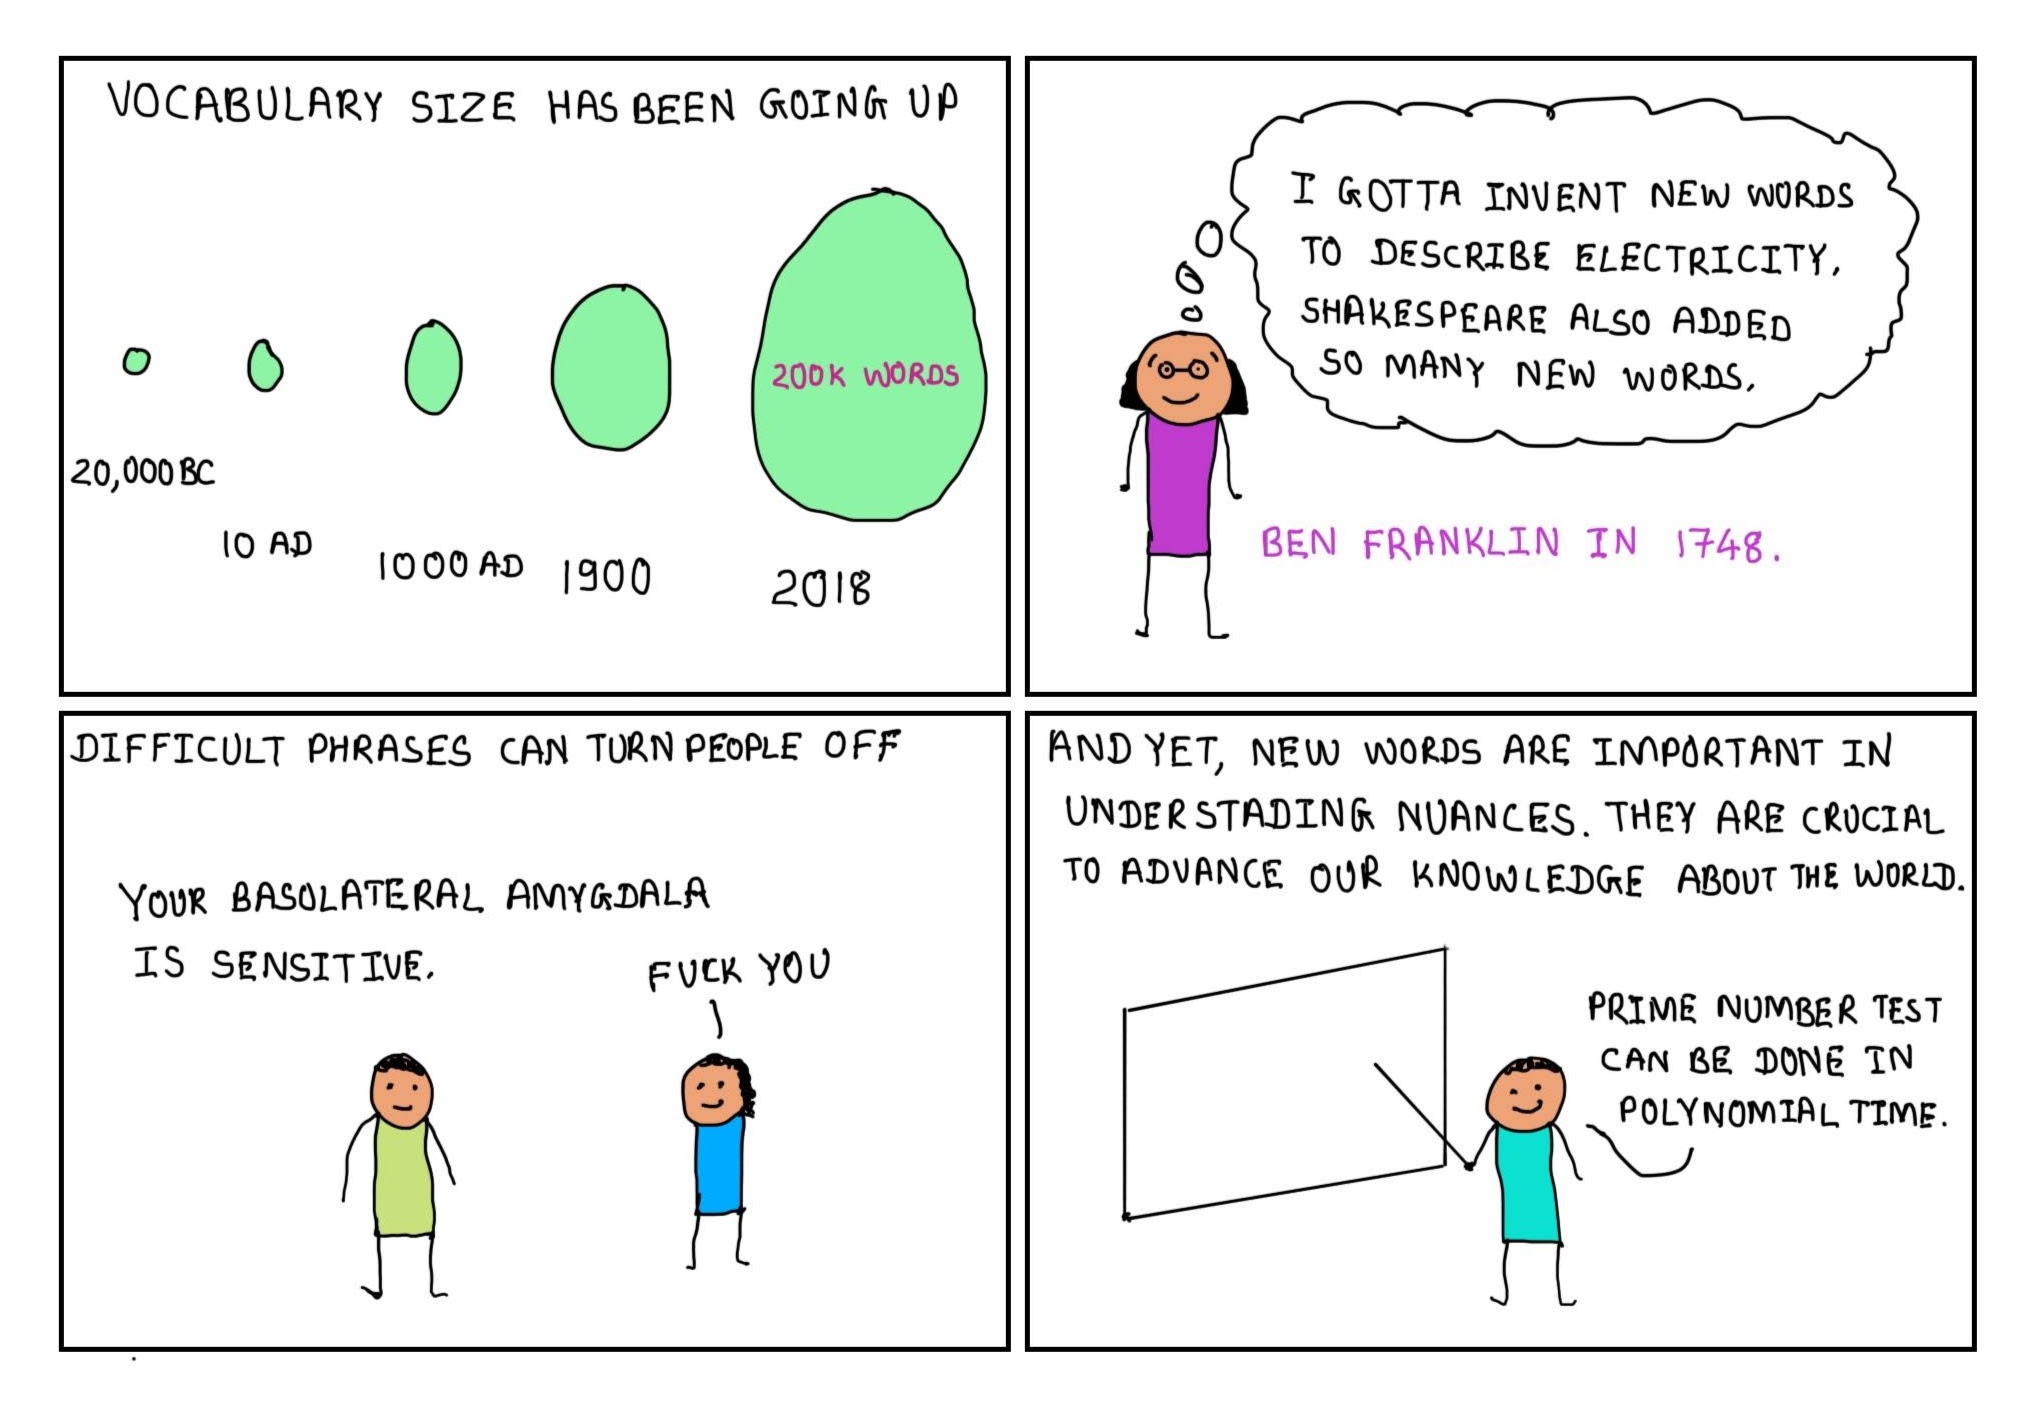 VOCABULARY SIZE HAS BEEN GOING UP
200K WORDS
20,000 BC
10 AD
1000 AD
1900
2018
I GOTTA INVENT NEW WORDS
TO DESCRIBE ELECTRICITY.
SHAKESPEARE ALSO ADDED
SO MANY NEW WORDS.
BEN FRANKLIN IN 1748.
DIFFICULT PHRASES CAN TURN PEOPLE OFF
YOUR BASOLATERAL AMYGDALA
IS SENSITIVE.
FUCK YOU
AND YET, NEW WORDS ARE IMPORTANT IN
UNDERSTADING NUANCES. THEY ARE CRUCIAL
TO ADVANCE OUR KNOWLEDGE ABOUT THE WORLD.
PRIME NUMBER TEST
CAN BE DONE IN
POLYNOMIAL TIME.